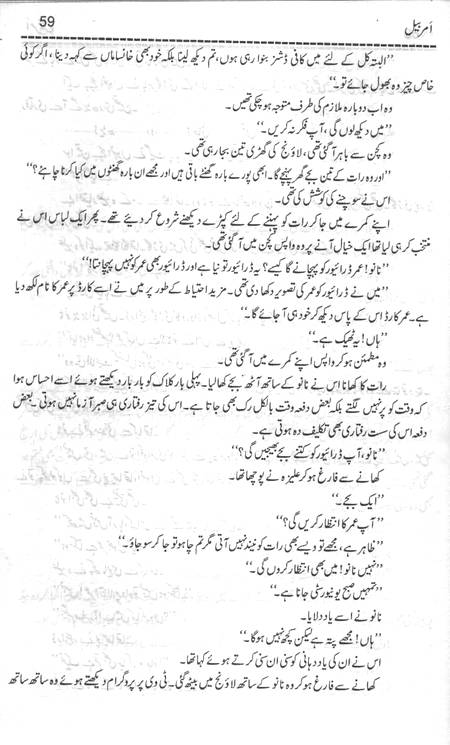 59
اَمر بیل
”البتہ کل کے لئے میں کافی ڈشز بنوا رہی ہوں، تم دیکھ لینا بلکہ خود بھی خانساماں سے کہہ دینا، اگر کوئی
خاص چیز وہ بھول جائے تو۔“
وہ اب دوبارہ ملازم کی طرف متوجہ ہو چکی تھیں۔
”میں دیکھ لوں گی، آپ فکر نہ کریں۔“
وہ کچن سے باہر آ گئی تھی، لاؤنج کی گھڑی تین بجا رہی تھی۔
”اور وہ رات کے تین بجے گھر پہنچے گا۔ ابھی پورے بارہ گھنٹے باقی ہیں اور مجھے ان بارہ گھنٹوں میں کیا کرنا چاہئے؟“
اس نے سوچنے کی کوشش کی تھی۔
اپنے کمرے میں جا کر رات کو پہننے کے لئے کپڑے دیکھنے شروع کر دیئے تھے۔ پھر ایک لباس اس نے
منتخب کر ہی لیا تھا ایک خیال آنے پر وہ واپس کچن میں آ گئی تھی۔
”نانو! عمر ڈرائیور کو پہچانے گا کیسے؟ یہ ڈرائیور تو نیا ہے اور ڈرائیور بھی عمر کو نہیں پہچانتا!“
”میں نے ڈرائیور کو عمر کی تصویر دکھا دی تھی۔ مزید احتیاط کے طور پر میں نے اسے کارڈ پر عمر کا نام لکھ دیا
ہے۔ عمر کارڈ اس کے پاس دیکھ کر خود ہی آ جائے گا۔“
”ہاں! یہ ٹھیک ہے۔“
وہ مطمئن ہو کر واپس اپنے کمرے میں آ گئی تھی۔
رات کا کھانا اس نے نانو کے ساتھ آٹھ بجے کھا لیا۔ پہلی بار کلاک کو بار بار دیکھتے ہوئے اسے احساس ہوا
کہ وقت کو پر نہیں لگتے بلکہ بعض دفعہ وقت بالکل رک بھی جاتا ہے۔ اس کی تیز رفتاری ہی صبر آزما نہیں ہوتی۔ بعض
دفعہ اس کی ست رفتاری بھی تکلیف دہ ہوتی ہے۔
”نانو، آپ ڈرائیور کو کتنے بجے بھیجیں گی؟“
کھانے سے فارغ ہو کر علیزہ نے پوچھا تھا۔
”ایک بجے۔“
”آپ عمر کا انتظار کریں گی؟“
”ظاہر ہے، مجھے تو ویسے بھی رات کو نیند نہیں آتی مگر تم چاہو تو جا کر سو جاؤ۔“
”نہیں نانو! میں بھی انتظار کروں گی۔“
”تمہیں صبح یونیورسٹی جانا ہے۔“
نانو نے اسے یاد دلایا۔
”ہاں! مجھے پتہ ہے لیکن کچھ نہیں ہوگا۔“
اس نے ان کی یاد دہانی کو سنی ان سنی کرتے ہوئے کہا تھا۔
کھانے سے فارغ ہو کر وہ نانو کے ساتھ لاؤنج میں بیٹھ گئی۔ ٹی وی پر پروگرام دیکھتے ہوئے وہ ساتھ ساتھ